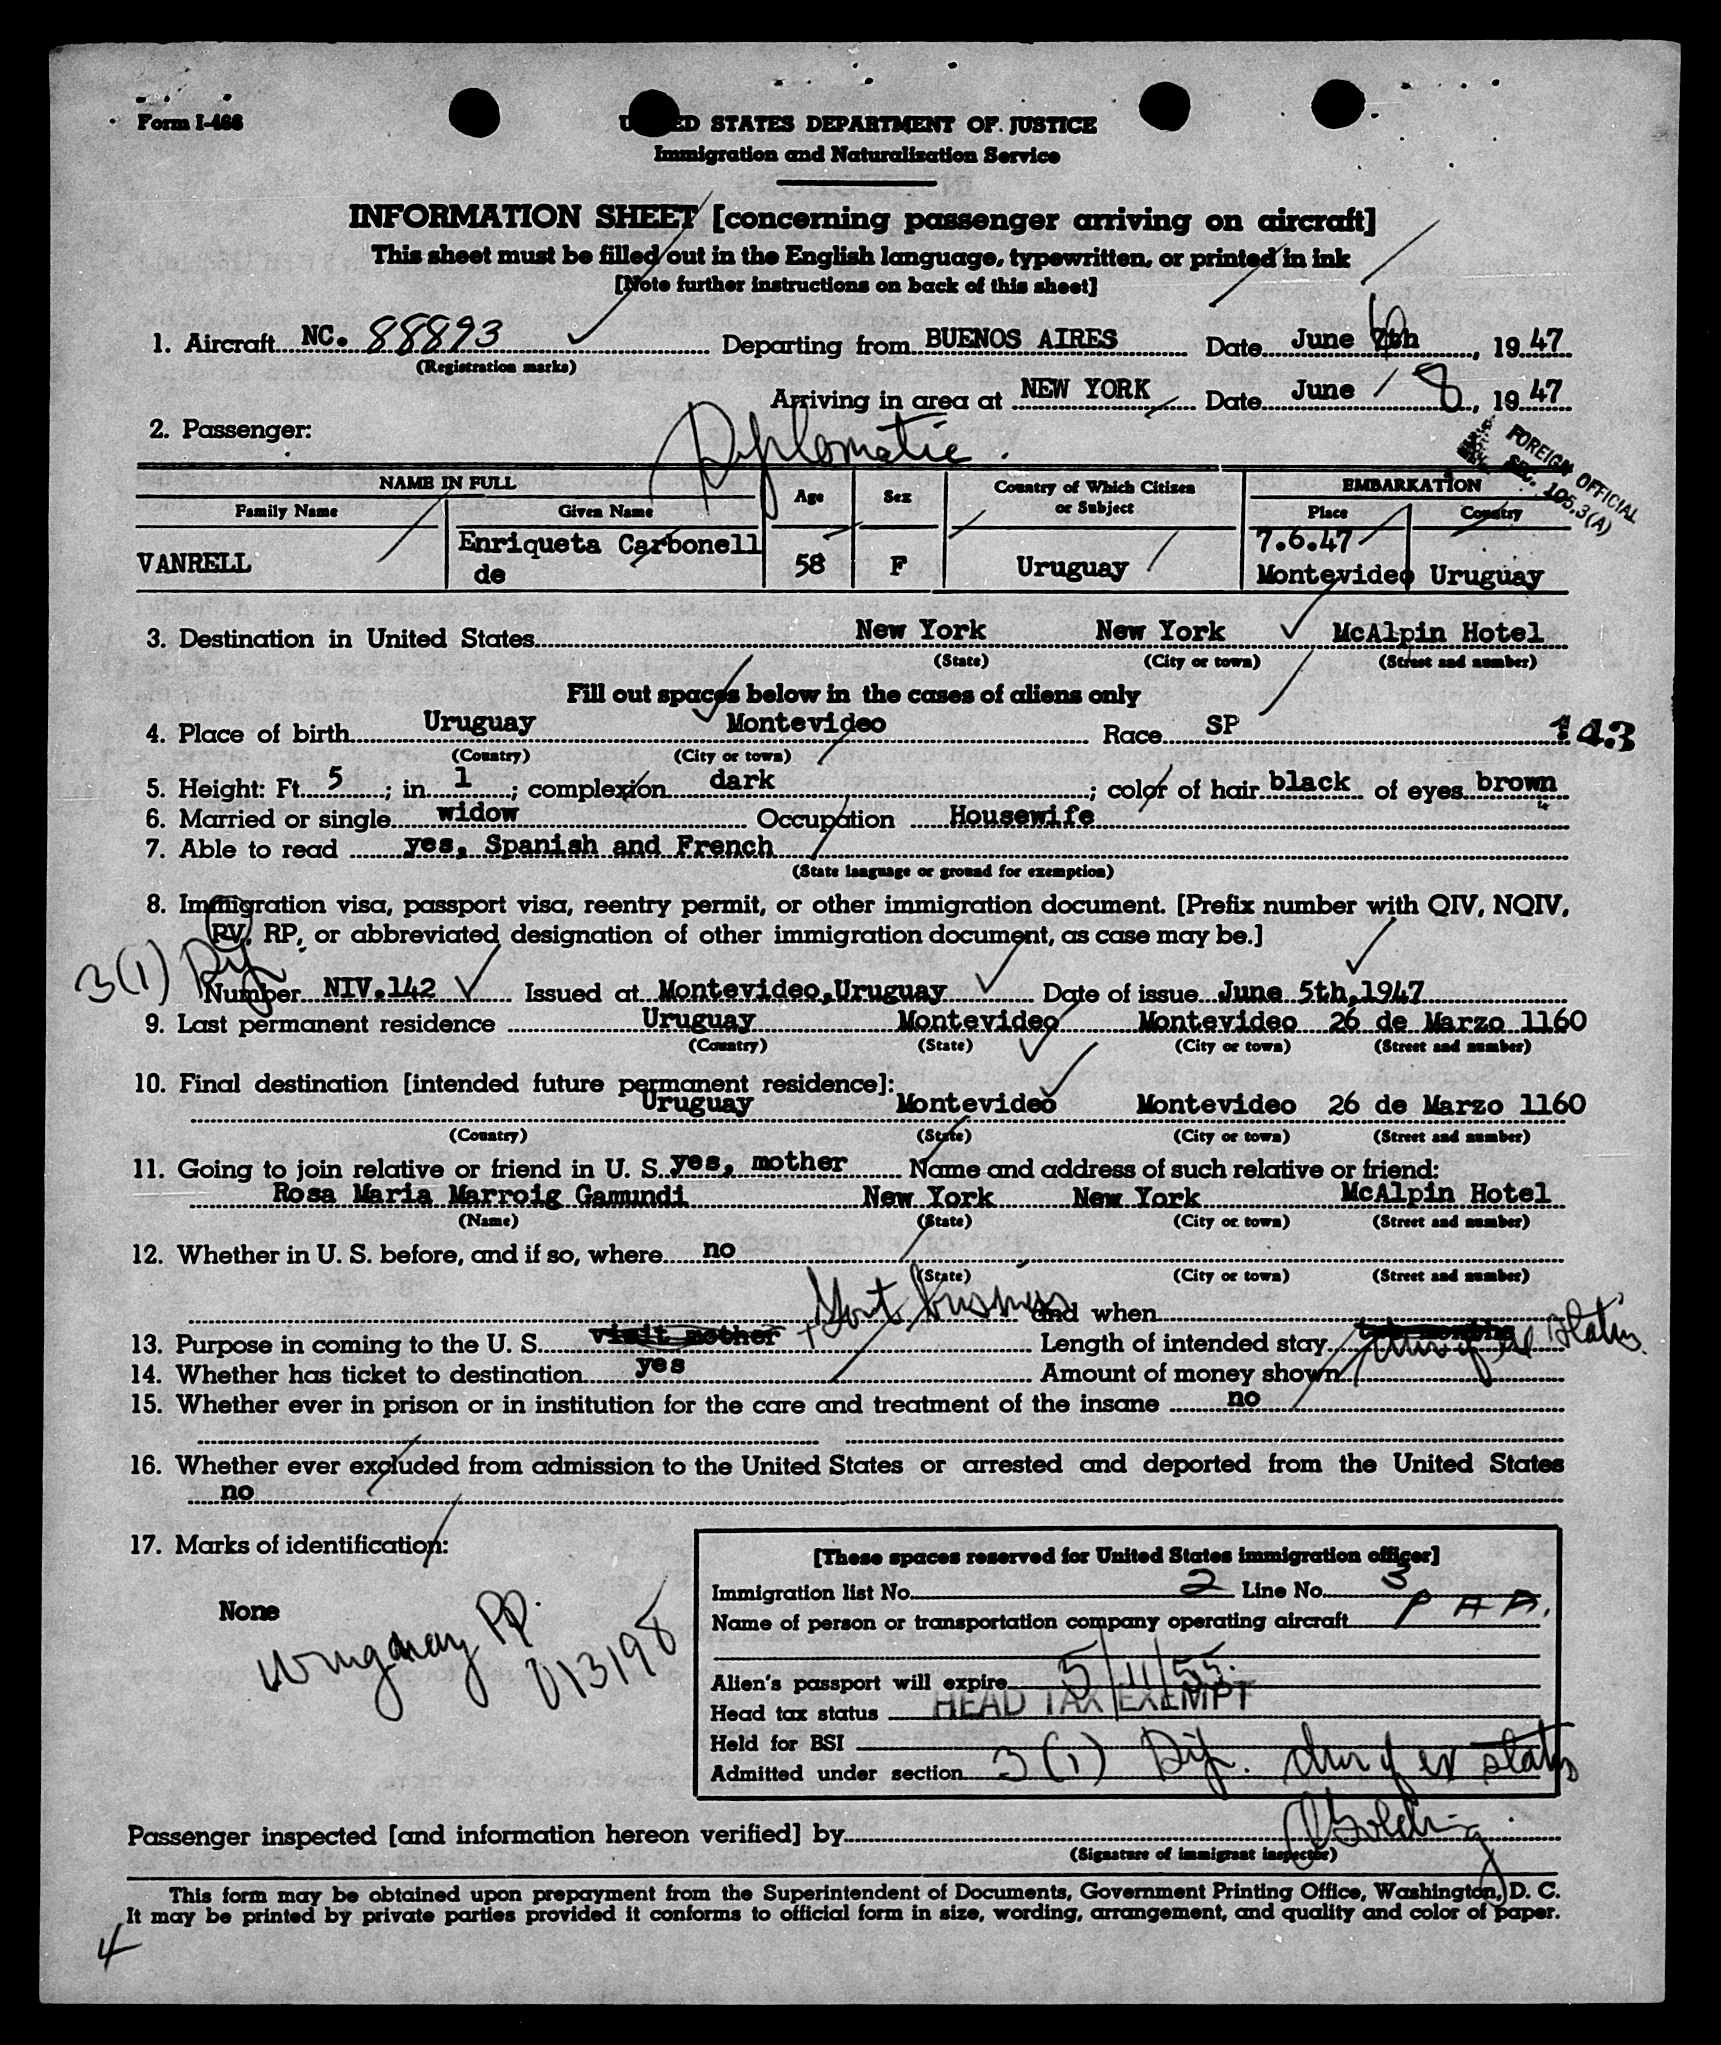 Form I-466
UNITED STATES DEPARTMENT OF JUSTICE
Immigration and Naturalization Service
INFORMATION SHEET [concerning passenger arriving on aircraft]
This sheet must be filled out in the English language, typewritten, or printed in ink
[Note further instructions on back of this sheet]
1. Aircraft NC. 88893 Departing from BUENOS AIRES Date June 7th 6, 19 47
(Registration marks)
Arriving in area at NEW YORK Date June 8, 19 47
2. Passenger: Diplomatic.
FOREIGN OFFICIAL
SEC. 105.3(A)
NAME IN FULL Age Sex Country of Which Citizen or Subject EMBARKATION
Family Name Given Name Place Country
VANRELL Enriqueta Carbonell de 58 F Uruguay 7.6.47 Montevideo Uruguay
3. Destination in United States New York New York McAlpin Hotel
(State) (City or town) (Street and number)
Fill out spaces below in the cases of aliens only
4. Place of birth Uruguay Montevideo Race SP 143
(Country) (City or town)
5. Height: Ft. 5; in. 1; complexion dark; color of hair black of eyes brown
6. Married or single widow Occupation Housewife
7. Able to read yes, Spanish and French
(State language or ground for exemption)
8. Immigration visa, passport visa, reentry permit, or other immigration document. [Prefix number with QIV, NQIV,
PV, RP, or abbreviated designation of other immigration document, as case may be.]
3(1) Dip
Number NIV.142 Issued at Montevideo,Uruguay Date of issue June 5th,1947
9. Last permanent residence Uruguay Montevideo Montevideo 26 de Marzo 1160
(Country) (State) (City or town) (Street and number)
10. Final destination [intended future permanent residence]:
Uruguay Montevideo Montevideo 26 de Marzo 1160
(Country) (State) (City or town) (Street and number)
11. Going to join relative or friend in U. S. yes, mother Name and address of such relative or friend:
Rosa Maria Marroig Gamundi New York New York McAlpin Hotel
(Name) (State) (City or town) (Street and number)
12. Whether in U. S. before, and if so, where no
(State) (City or town) (Street and number)
and when
13. Purpose in coming to the U. S. visit mother Govt business Length of intended stay two months status
14. Whether has ticket to destination yes Amount of money shown
15. Whether ever in prison or in institution for the care and treatment of the insane no
16. Whether ever excluded from admission to the United States or arrested and deported from the United States
no
17. Marks of identification:
None
Uruguay PP.
[These spaces reserved for United States immigration officer]
Immigration list No. 2 Line No. 3
Name of person or transportation company operating aircraft P A A.
Alien's passport will expire 5/11/55.
Head tax status HEAD TAX EXEMPT
Held for BSI
Admitted under section 3(1) Dip. status
Passenger inspected [and information hereon verified] by
(Signature of immigrant inspector)
This form may be obtained upon prepayment from the Superintendent of Documents, Government Printing Office, Washington, D. C.
It may be printed by private parties provided it conforms to official form in size, wording, arrangement, and quality and color of paper.
4